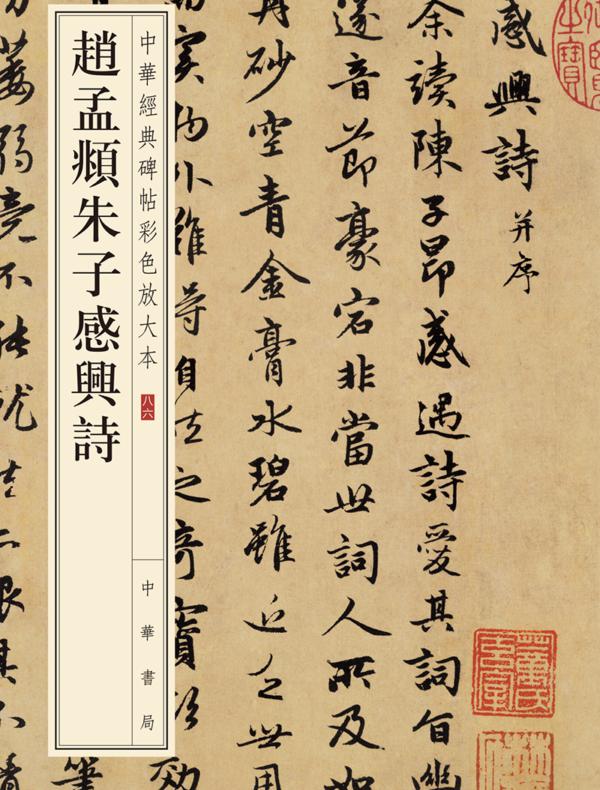 感興詩 并序
余讀陳子昂感遇詩愛其詞旨幽
遂音節豪宕非當世詞人所及如
丹砂空青金膏水碧雖近乏世用
實物外難得自然之奇寶欲效
中華經典碑帖彩色放大本 八六
中華書局
趙孟頫朱子感興詩
筆
萎弱竟不能就
恨其不